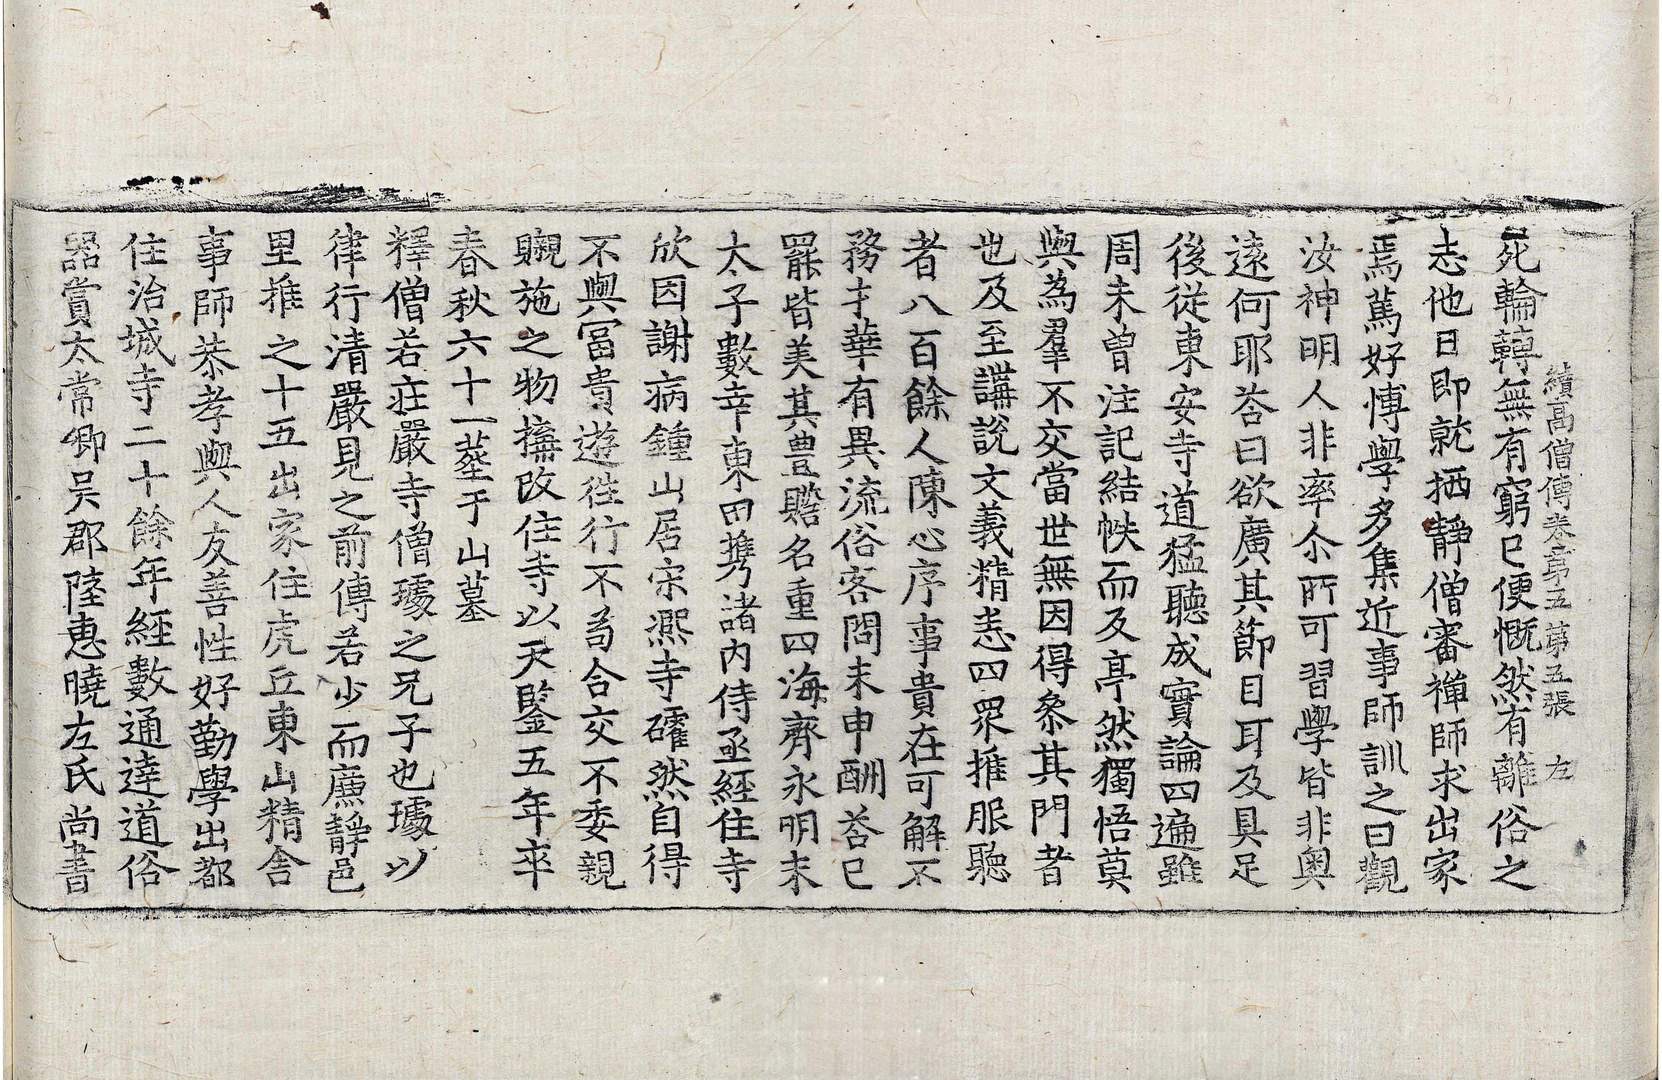 續高僧傳卷第五　第五張　左
死輪轉無有窮已便慨然有離俗之
志他日即就栖靜僧審禪師求出家
焉篤好博學多集近事師訓之曰觀
汝神明人非率尒所可習學皆非奧
遠何耶荅曰欲廣其節目耳及具足
後從東安寺道猛聽成實論四遍雖
周未曾注記結帙而及亭然獨悟莫
與為羣不交當世無因得叅其門者
也及至講說文義精恚四眾推服聽
者八百餘人陳心序事貴在可解不
務才華有異流俗客問未申酬荅已
罷皆美其豊贍名重四海齊永明末
太子數幸東田攜諸內侍亟經住寺
欣因謝病鍾山居宋熙寺確然自得
不與冨貴遊徃行不苟合交不委親
䞋施之物擣改住寺以天鑒五年卒
春秋六十一葬于山墓
釋僧若莊嚴寺僧璩之兄子也璩以
律行清嚴見之前傳若少而廉靜邑
里推之十五出家住虎丘東山精舍
事師恭孝與人友善性好勤學出都
住治城寺二十餘年經數通達道俗
器賞太常卿吴郡陸惠曉左氏尚書